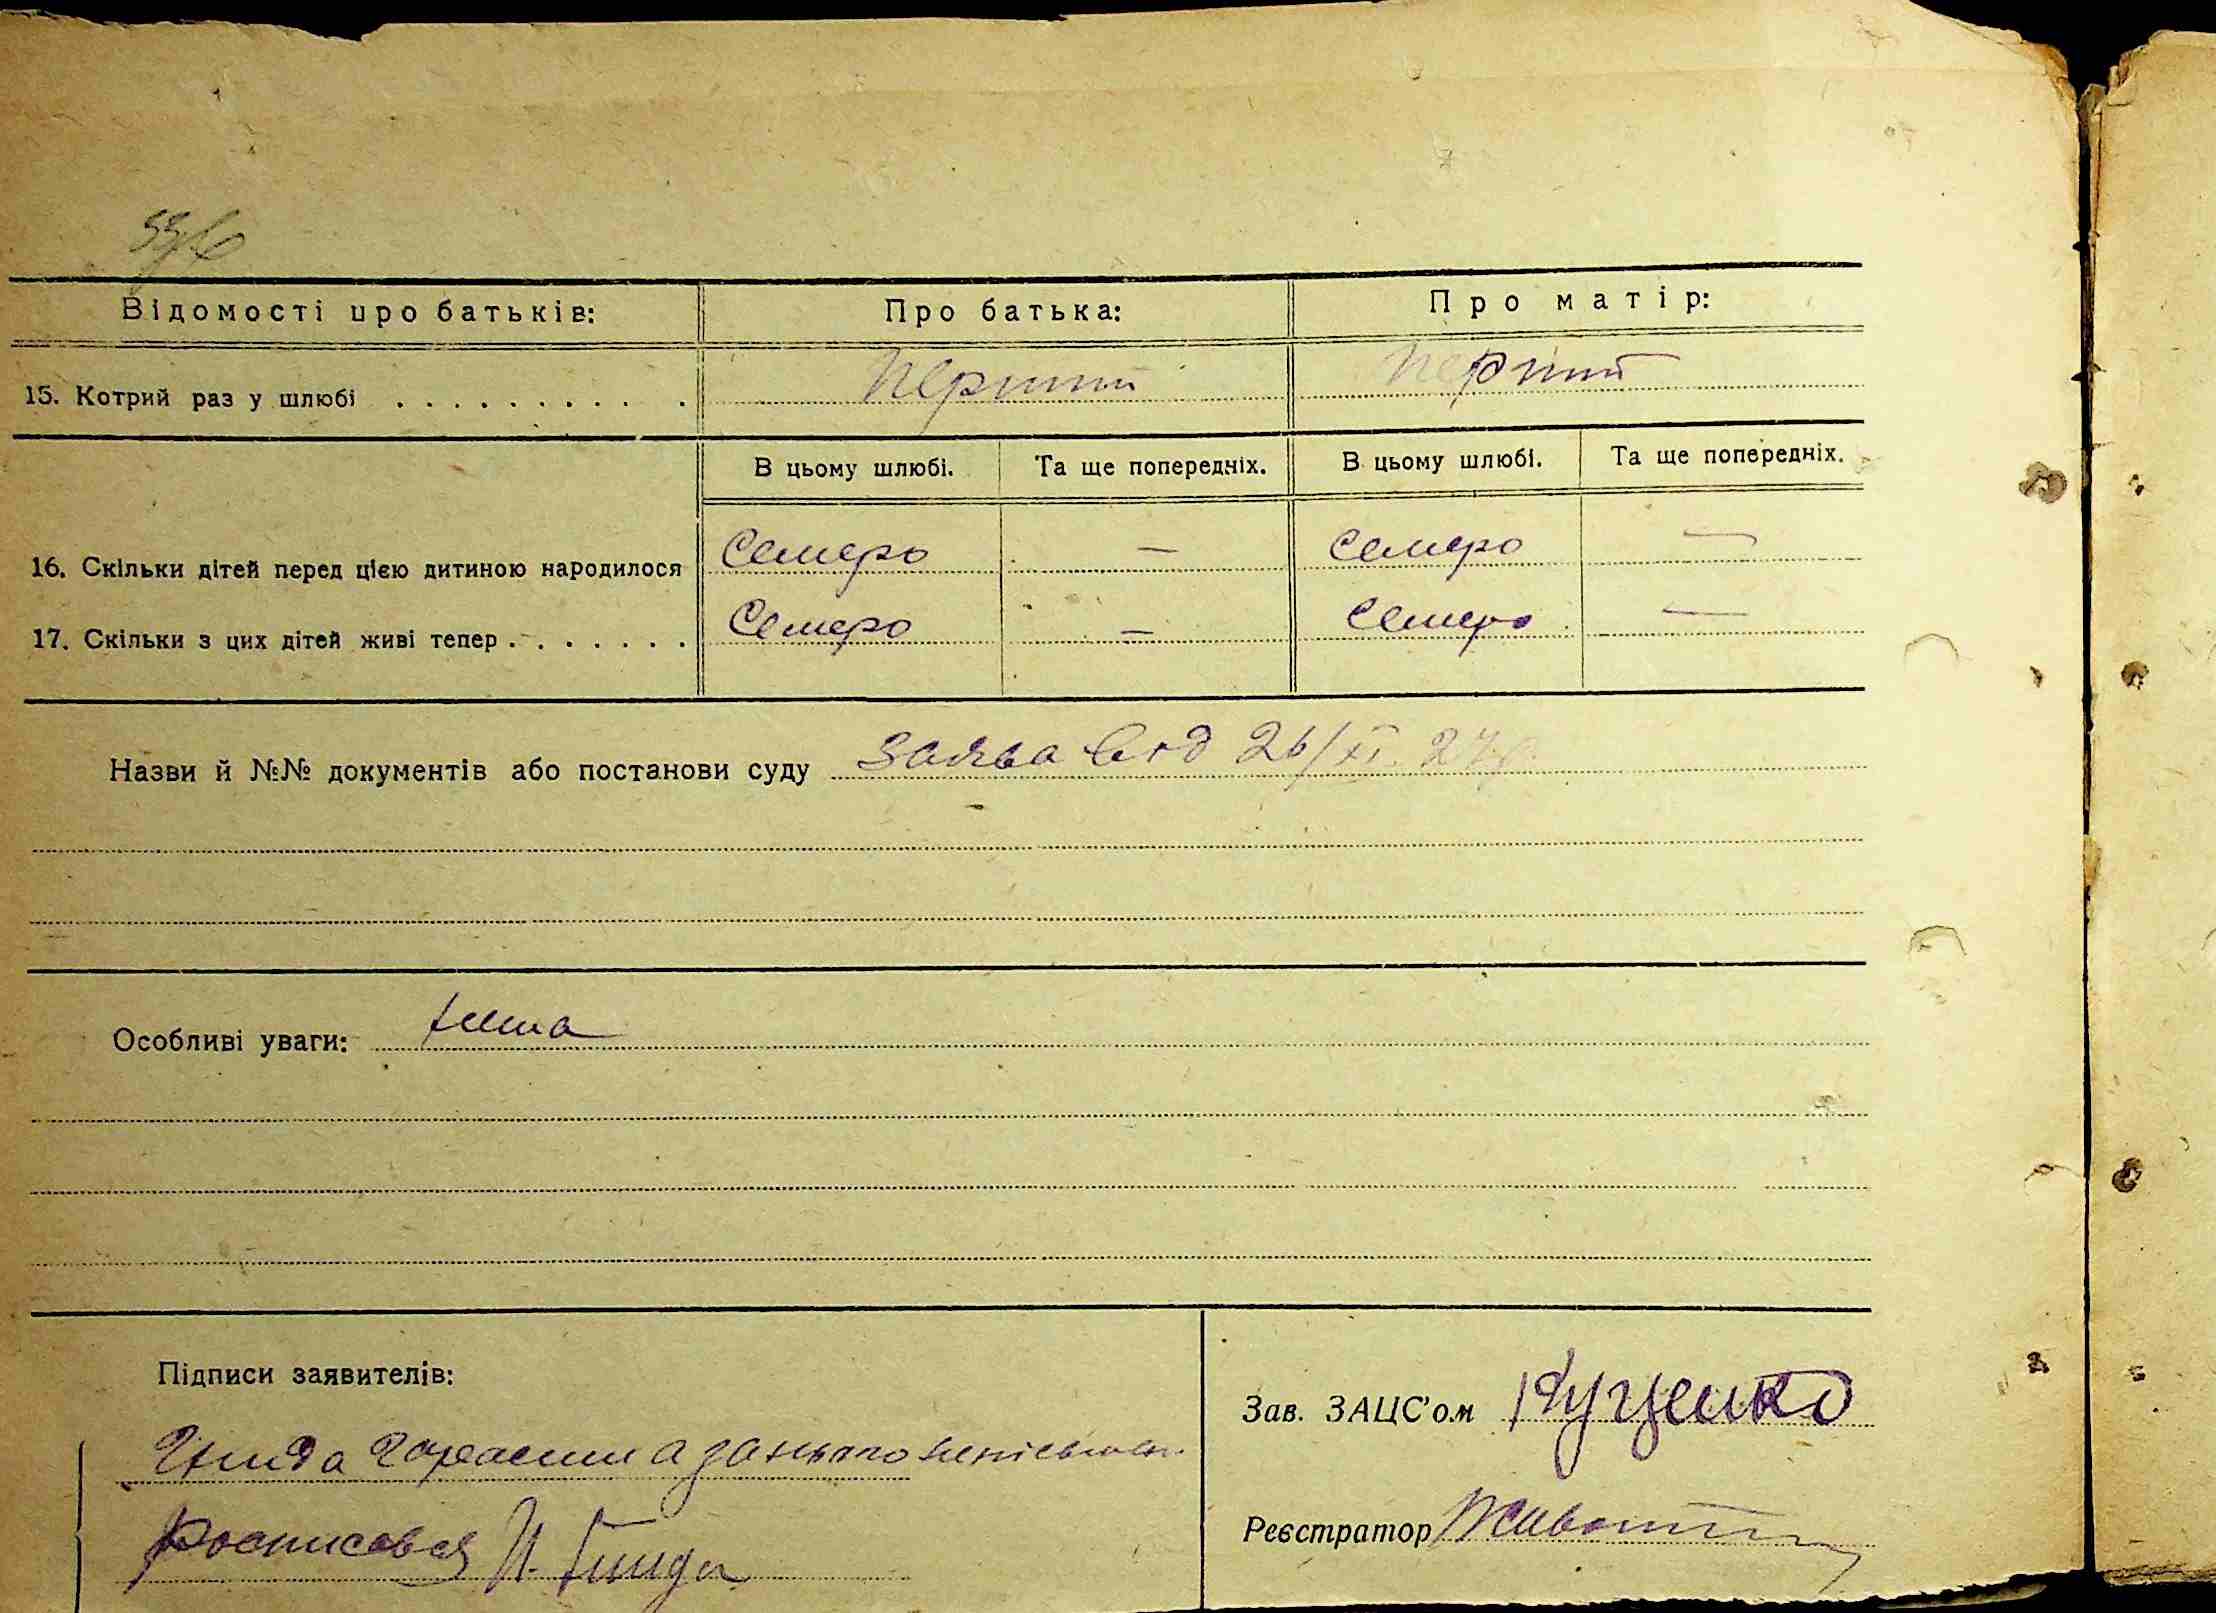 Відомості про батьків: Про батька: Про матір:
15. Котрий раз у шлюбі . . . . . . . . . . . перший перший
В цьому шлюбі. Та ще попередніх. В цьому шлюбі. Та ще попередніх.
16. Скільки дітей перед цією дитиною народилося семеро — семеро —
17. Скільки з цих дітей живі тепер . . . . . . . Семеро — семеро —
Назви й №№ документів або постанови суду заява від 26/XI. 27р.
Особливі уваги: нема
Підписи заявителів:
Зав. ЗАЦС'ом Куценко
Гинда Гарасим а за нього
Реєстратор
Росписовся Гинда